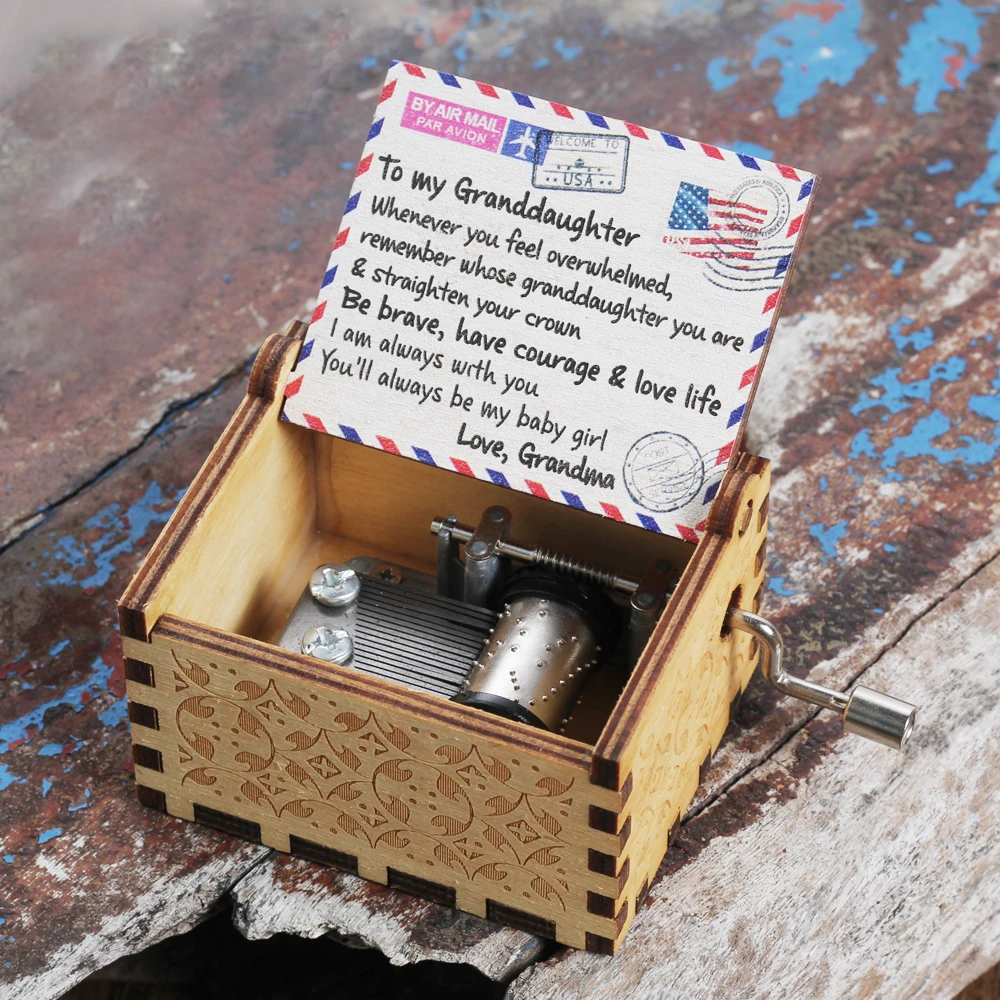 BY AIR MAIL
PAR AVION
WELCOME TO
USA
USA
To my Granddaughter
Whenever you feel overwhelmed,
remember whose granddaughter you are
& straighten your crown
Be brave, have courage & love life
I am always with you
You'll always be my baby girl
Love, Grandma
POST